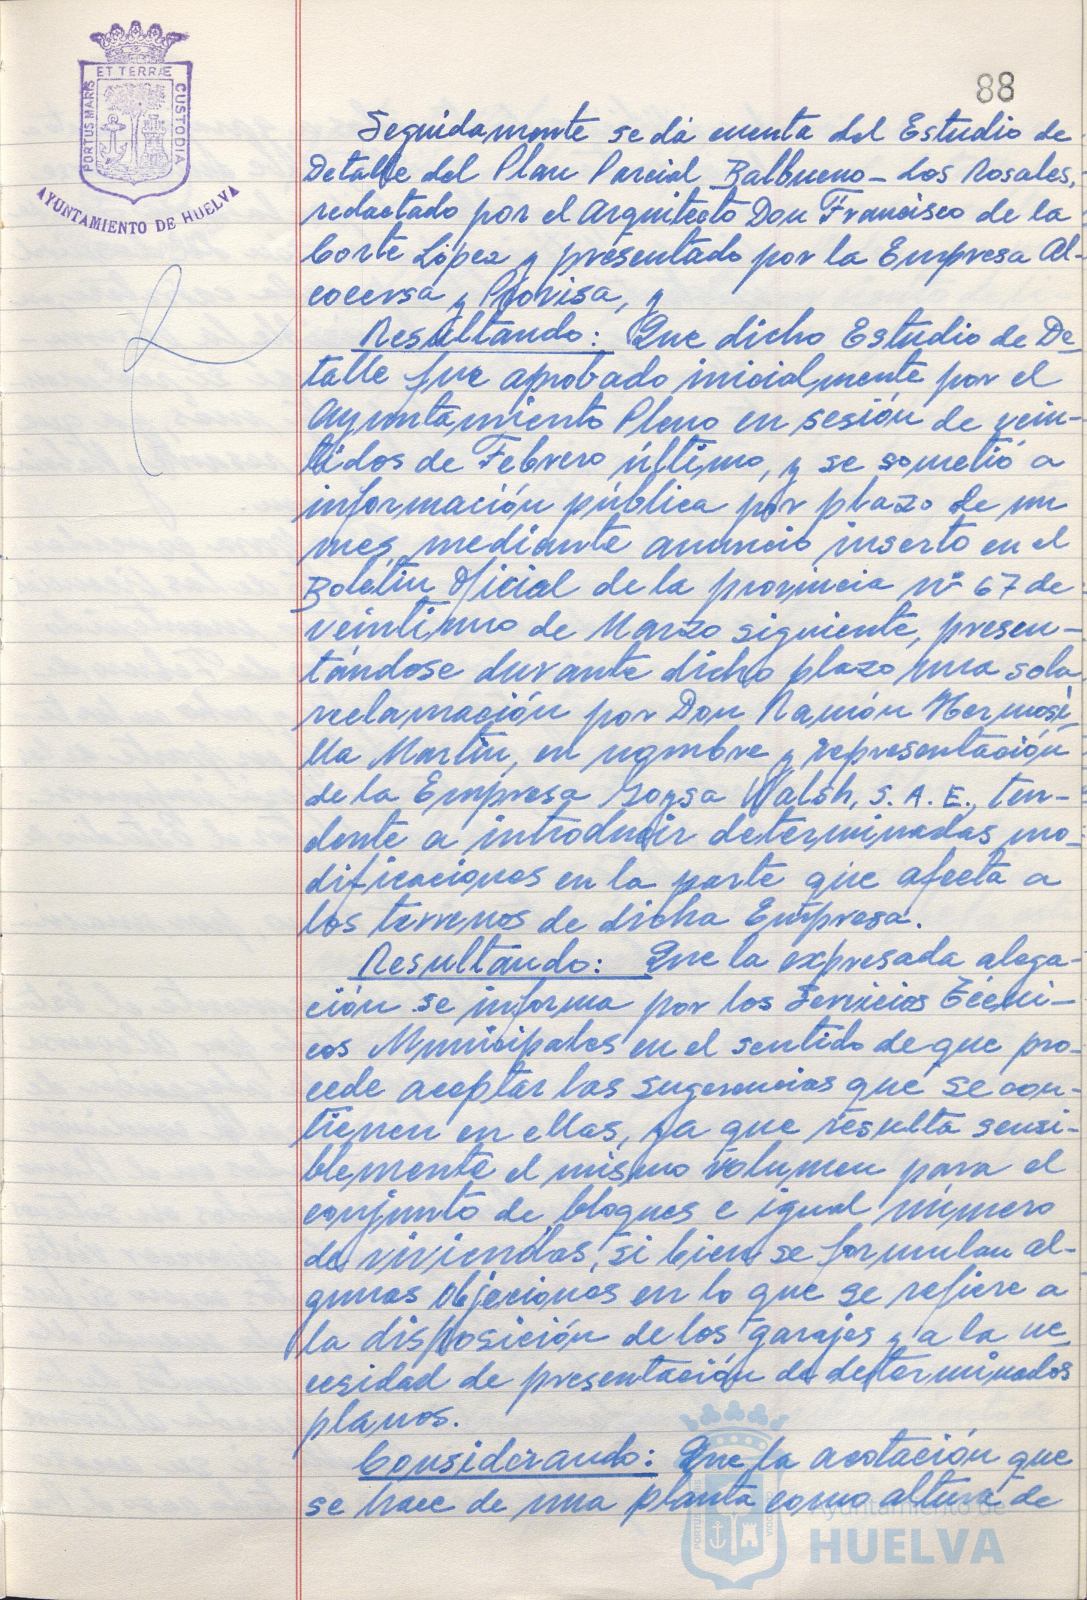 ET TERRÆ
PORTUS MARIS
CUSTODIA
AYUNTAMIENTO DE HUELVA
88
Seguidamente se dá cuenta del Estudio de
Detalle del Plan Parcial Balbueno - Los Rosales,
redactado por el Arquitecto Don Francisco de la
Corte López y presentado por la Empresa Al-
cocersa y Provisa, y
Resultando: Que dicho Estudio de De-
talle fue aprobado inicialmente por el
Ayuntamiento Pleno en sesión de vein-
tidos de Febrero último, y se sometió a
información pública por plazo de un
mes, mediante anuncio inserto en el
Boletin Oficial de la provincia nº 67 de
veintiuno de Marzo siguiente, presen-
tándose durante dicho plazo una sola
reclamación por Don Ramón Hermosi-
lla Martin, en nombre y representación
de la Empresa Goysa Walsh, S.A.E., ten-
dente a introducir determinadas mo-
dificaciones en la parte que afecta a
los terrenos de dicha Empresa.
Resultando: Que la expresada alega-
ción se informa por los Servicios Técni-
cos Municipales en el sentido de que pro-
cede aceptar las sugerencias que se con-
tienen en ellas, ya que resulta sensi-
blemente el mismo volumen para el
conjunto de bloques e igual número
de viviendas, si bien se formulan al-
gunas objeciones en lo que se refiere a
la disposición de los garajes y a la ne-
cesidad de presentación de determinados
planos.
Considerando: Que la acotación que
se hace de una planta como altura de
Ayuntamiento de
HUELVA